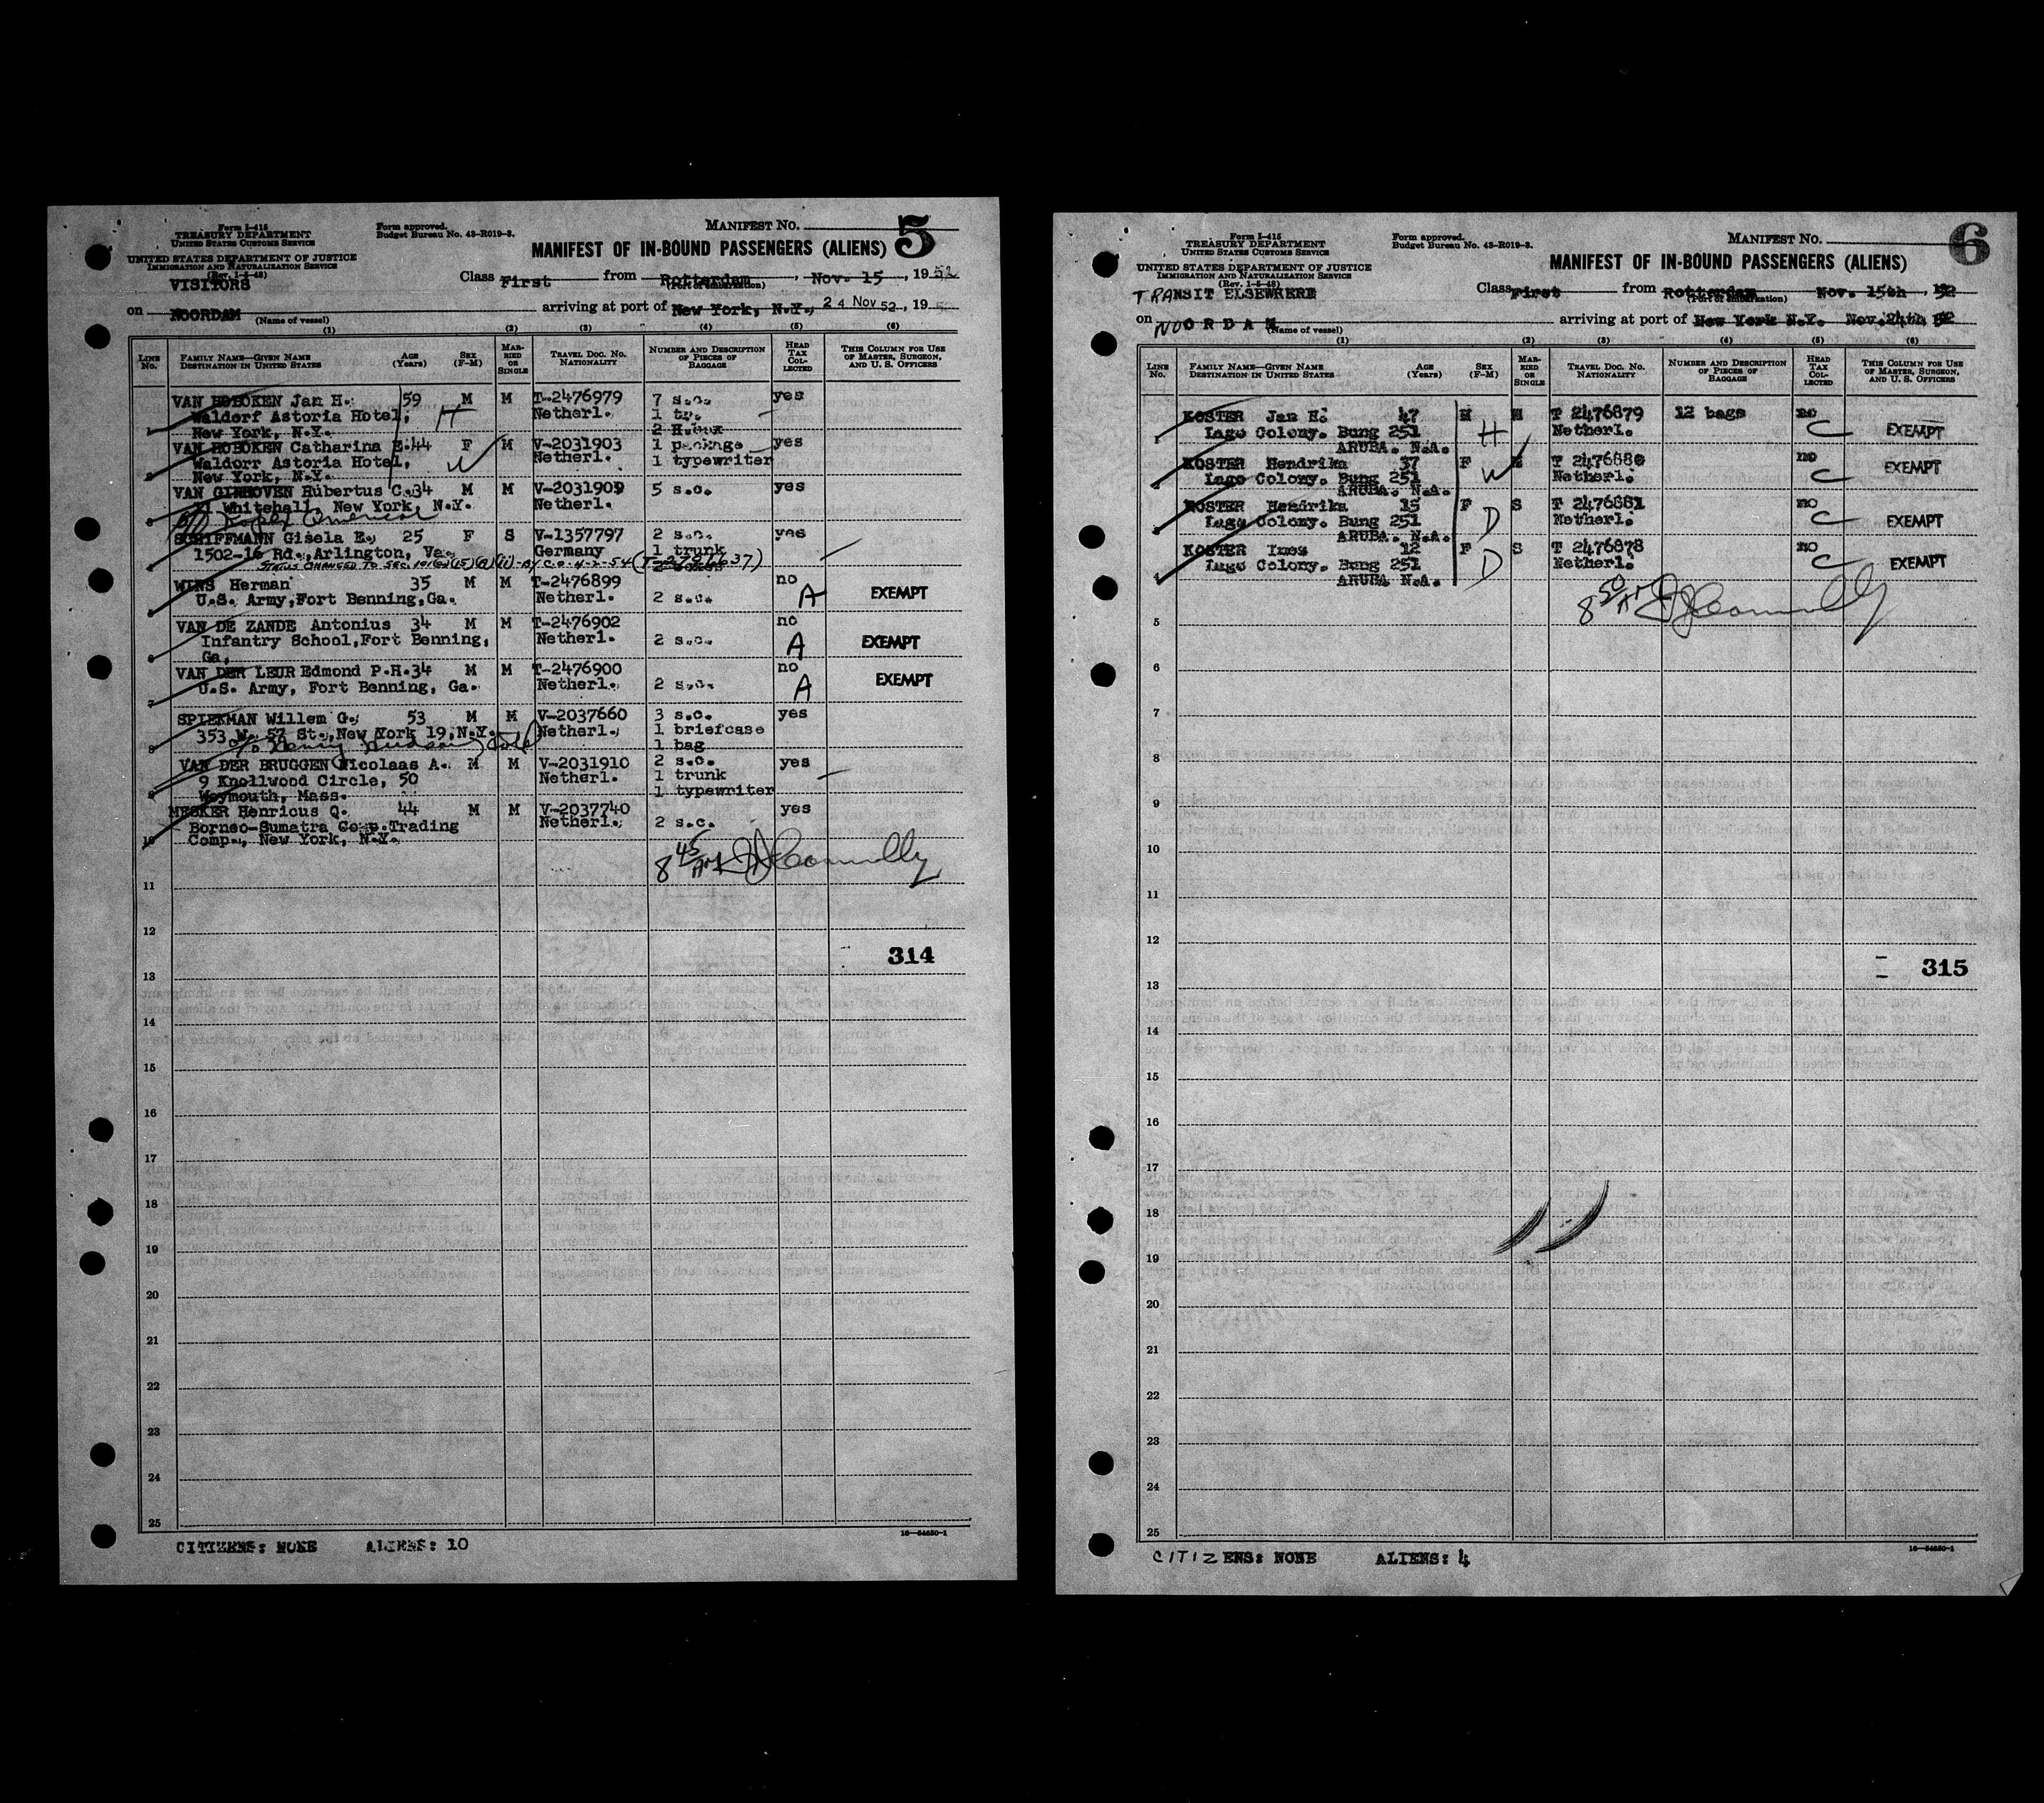 Form I-415
TREASURY DEPARTMENT
UNITED STATES CUSTOMS SERVICE
UNITED STATES DEPARTMENT OF JUSTICE
IMMIGRATION AND NATURALIZATION SERVICE
(Rev. 1-5-48)
VISITORS
Form approved.
Budget Bureau No. 43-R019-3.
MANIFEST NO. 5
MANIFEST OF IN-BOUND PASSENGERS (ALIENS)
Class First from Rotterdam, Nov. 15, 1952
(Port of embarkation)
on NOORDAM arriving at port of New York, N.Y., 24 Nov 52, 19
(Name of vessel)
(1) (2) (3) (4) (5) (6)
LINE NO. FAMILY NAME—GIVEN NAME DESTINATION IN UNITED STATES AGE (Years) SEX (F-M) MARRIED OR SINGLE TRAVEL DOC. NO. NATIONALITY NUMBER AND DESCRIPTION OF PIECES OF BAGGAGE HEAD TAX COLLECTED THIS COLUMN FOR USE OF MASTER, SURGEON, AND U. S. OFFICERS
VAN HOBOKEN Jan H. 59 M M T-2476979 7 s.c. yes
Waldorf Astoria Hotel, H Netherl. 1 tr.
1 New York, N.Y. 2 H.box
VAN HOBOKEN Catharina E. 44 F M V-2031903 1 package yes
Waldorf Astoria Hotel, W Netherl. 1 typewriter
2 New York, N.Y.
VAN GINHOVEN Hubertus C. 34 M M V-2031909 5 s.c. yes
3 Whitehall, New York, N.Y. Netherl.
SCHIFFMANN Gisela E. 25 F S V-1357797 2 s.c. yes
1502-16 Rd., Arlington, Va. Germany 1 trunk
4 STATUS CHANGED TO SEC. 101(a)(15) 4-2-54
WINS Herman 35 M M T-2476899 no
5 U.S. Army, Fort Benning, Ga. Netherl. 2 s.c. A EXEMPT
VAN DE ZANDE Antonius 34 M M T-2476902 no
Infantry School, Fort Benning, Netherl. 2 s.c. A EXEMPT
6 Ga.
VAN DER LEUR Edmond P.H. 34 M M T-2476900 no
7 U.S. Army, Fort Benning, Ga. Netherl. 2 s.c. A EXEMPT
SPIEKMAN Willem G. 53 M M V-2037660 3 s.c. yes
353 W. 57 St., New York 19, N.Y. Netherl. 1 briefcase
8 c/o Henry Hudson Hotel 1 bag
VAN DER BRUGGEN Nicolaas A. M M V-2031910 2 s.c. yes
9 Knollwood Circle, 50 Netherl. 1 trunk
9 Weymouth, Mass. 1 typewriter
MESKER Henricus Q. 44 M M V-2037740 yes
Borneo-Sumatra Comp. Trading Netherl. 2 s.c.
10 Comp., New York, N.Y.
8 45 AM Connolly
11
12
314
13
14
15
16
17
18
19
20
21
22
23
24
25
16—54650-1
CITIZENS: NONE ALIENS: 10
Form I-415
TREASURY DEPARTMENT
UNITED STATES CUSTOMS SERVICE
UNITED STATES DEPARTMENT OF JUSTICE
IMMIGRATION AND NATURALIZATION SERVICE
(Rev. 1-5-48)
TRANSIT ELSEWHERE
Form approved.
Budget Bureau No. 43-R019-3.
MANIFEST NO. 6
MANIFEST OF IN-BOUND PASSENGERS (ALIENS)
Class First from Rotterdam Nov. 15th, 52
(Port of embarkation)
on NOORDAM arriving at port of New York N.Y. Nov. 24th 52
(Name of vessel)
(1) (2) (3) (4) (5) (6)
LINE NO. FAMILY NAME—GIVEN NAME DESTINATION IN UNITED STATES AGE (Years) SEX (F-M) MARRIED OR SINGLE TRAVEL DOC. NO. NATIONALITY NUMBER AND DESCRIPTION OF PIECES OF BAGGAGE HEAD TAX COLLECTED THIS COLUMN FOR USE OF MASTER, SURGEON, AND U. S. OFFICERS
KOSTER Jan H. 47 M M T 2476879 12 bags no
Lago Colony. Bung 251 H Netherl. C EXEMPT
1 ARUBA. N.A.
KOSTER Hendrika 37 F M T 2476880 no
Lago Colony. Bung 251 W Netherl. C EXEMPT
2 ARUBA. N.A.
KOSTER Hendrika 15 F S T 2476881 no
Lago Colony. Bung 251 D Netherl. C EXEMPT
3 ARUBA. N.A.
KOSTER Ines 12 F S T 2476878 no
Lago Colony. Bung 251 D Netherl. C EXEMPT
4 ARUBA N.A.
8 50 AM Connolly
5
6
7
8
9
10
11
12
315
13
14
15
16
17
18
19
20
21
22
23
24
25
16—54650-1
CITIZENS: NONE ALIENS: 4